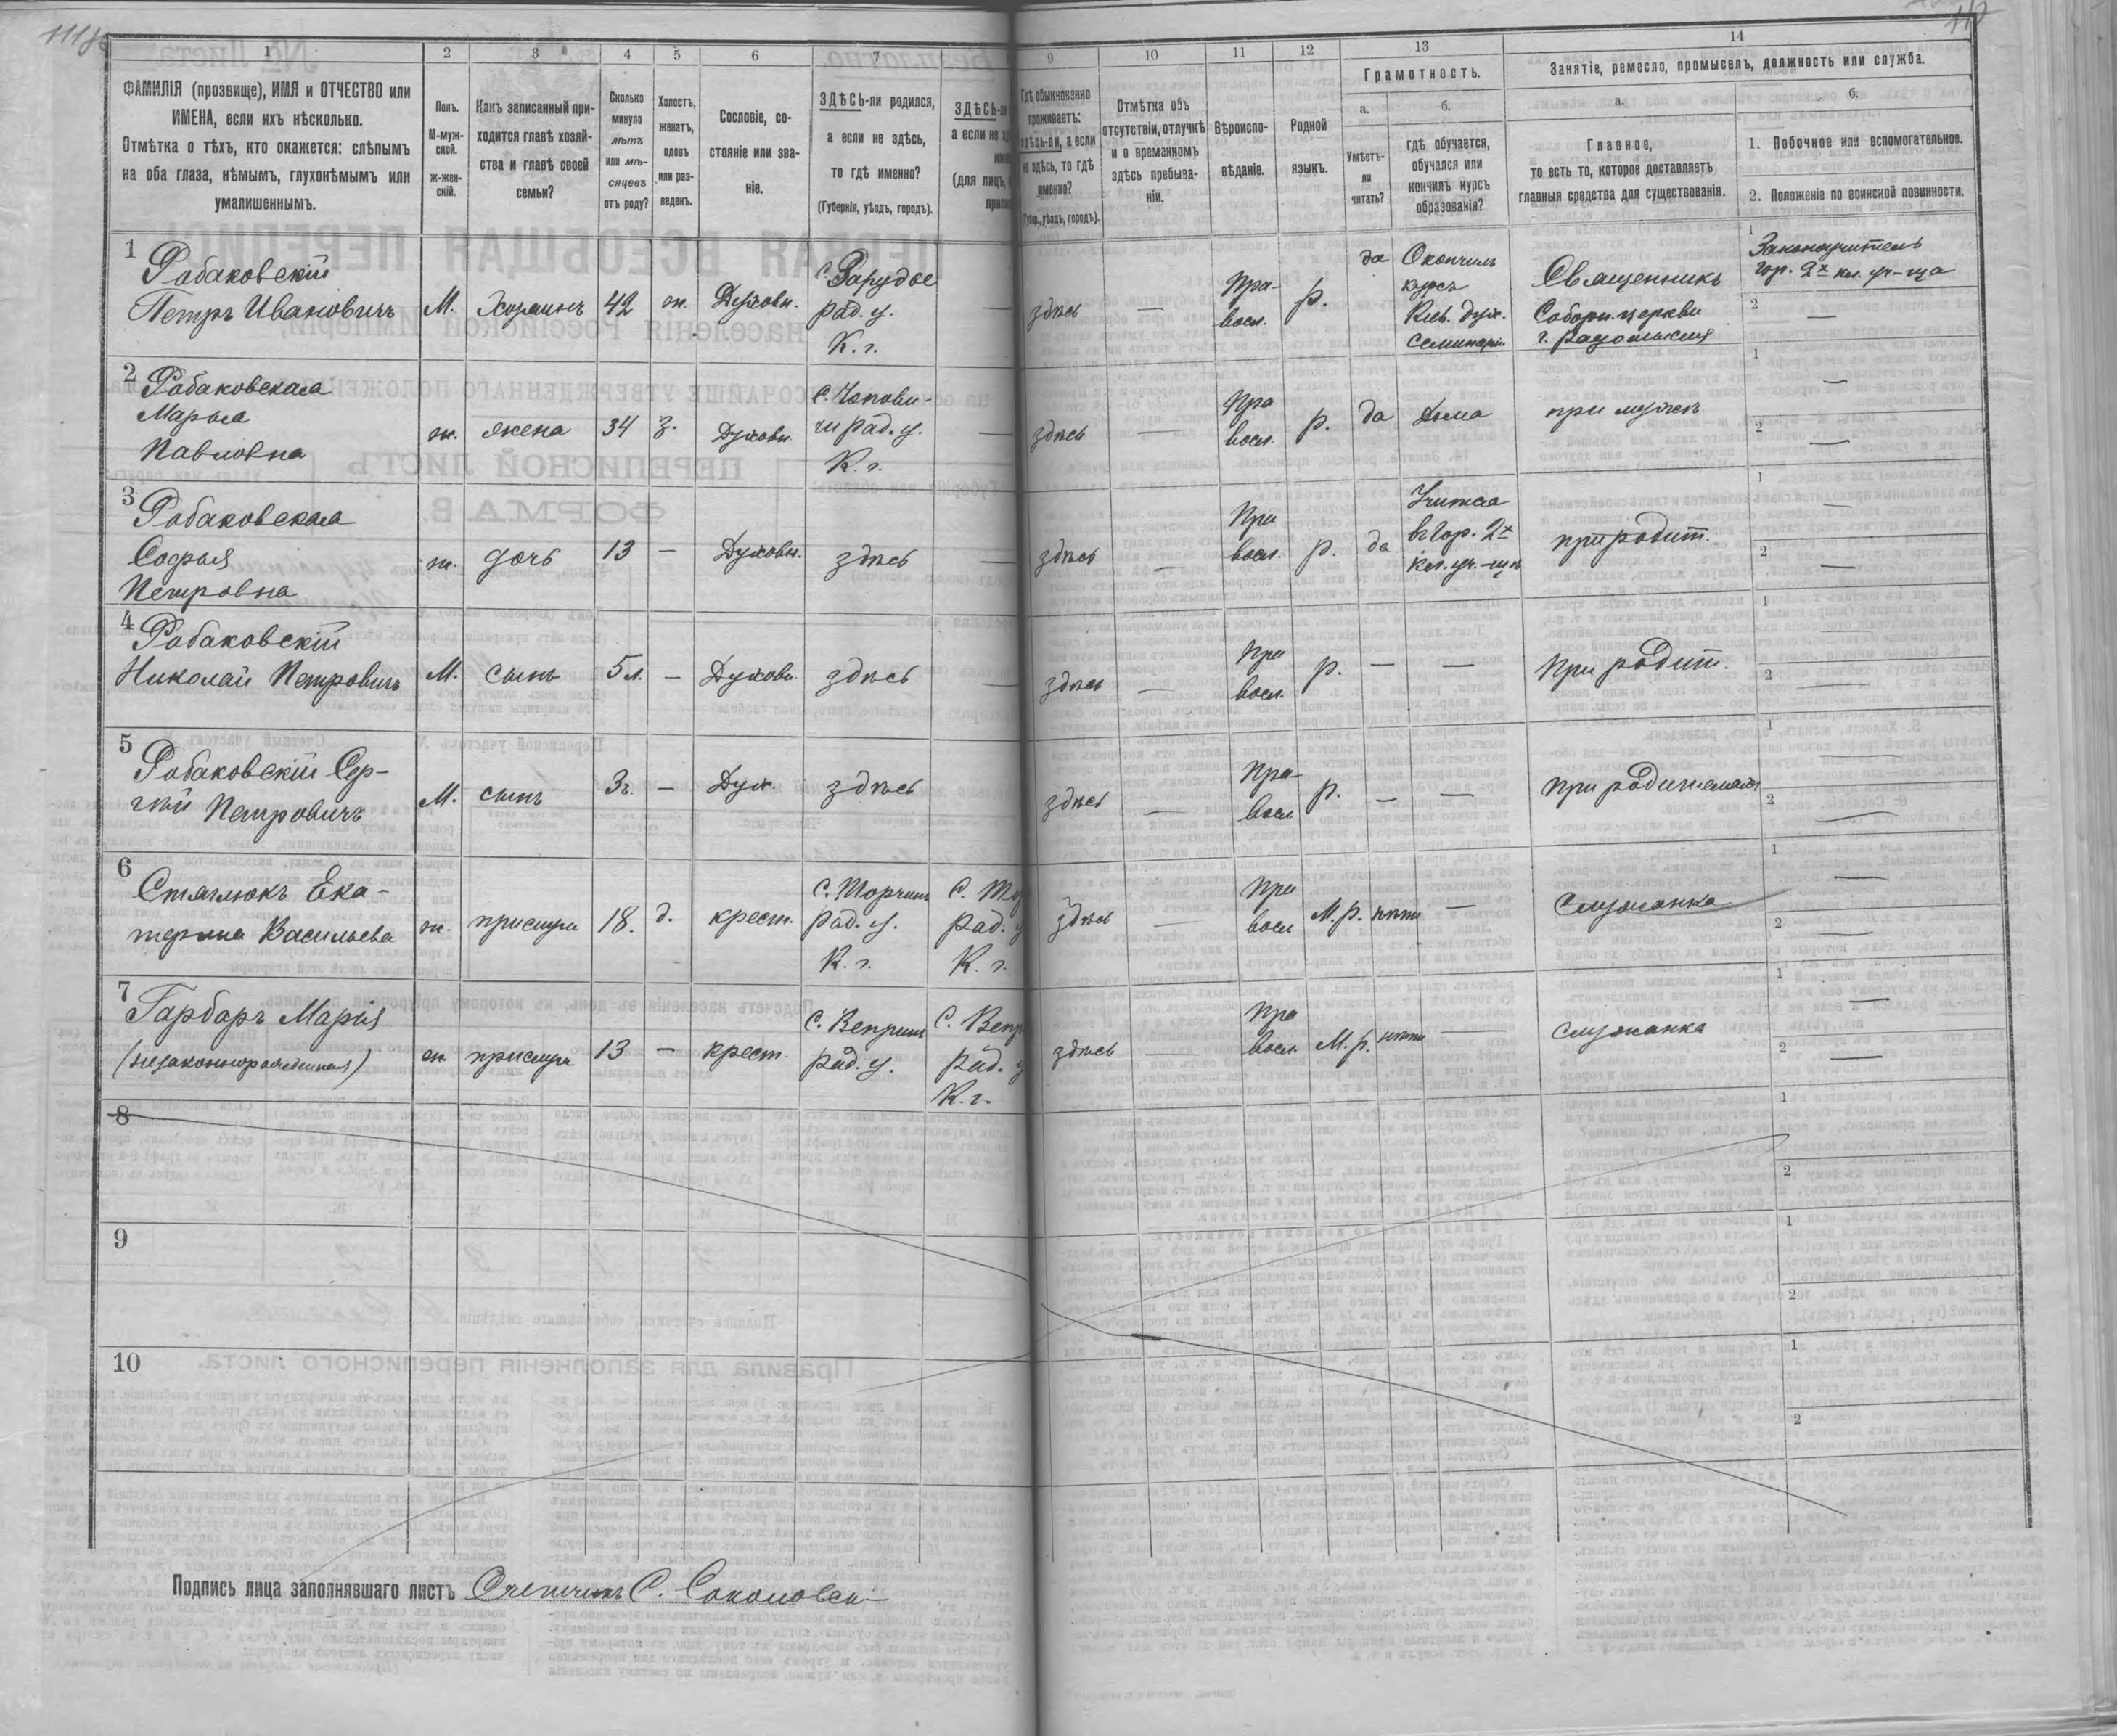 1 2 3 4 5 6 7
9 10 11 12 13 14
ФАМИЛІЯ (прозвище), ИМЯ и ОТЧЕСТВО или
ИМЕНА, если ихъ нѣсколько.
Отмѣтка о тѣхъ, кто окажется: слѣпымъ
на оба глаза, нѣмымъ, глухонѣмымъ или
умалишеннымъ.
Полъ.
М-муж-
ской.
ж-жен-
скій.
Какъ записанный при-
ходится главѣ хозяй-
ства и главѣ своей
семьи?
Сколько
минуло
лѣтъ
или мѣ-
сяцевъ
отъ роду?
Холостъ,
женатъ,
вдовъ
или раз-
веденъ.
Сословіе, со-
стояніе или зва-
ніе.
ЗДѢСЬ-ли родился,
а если не здѣсь,
то гдѣ именно?
(Губернія, уѣздъ, городъ).
ЗДѢСЬ-
а если не
(для лицъ,
Гдѣ обыкновенно
проживаетъ:
здѣсь-ли, а если
не здѣсь, то гдѣ
именно?
(Губ., уѣздъ, городъ).
Отмѣтка объ
отсутствіи, отлучкѣ
и о временномъ
здѣсь пребыва-
ніи.
Вѣроиспо-
вѣданіе.
Родной
языкъ.
Грамотность.
а.
Умѣетъ-
ли
читать?
б.
гдѣ обучается,
обучался или
кончилъ курсъ
образованія?
Занятіе, ремесло, промыселъ, должность или служба.
а.
Главное,
то есть то, которое доставляетъ
главныя средства для существованія.
б.
1. Побочное или вспомогательное.
2. Положеніе по воинской повинности.
1
Рабаковскій
Петръ Ивановичъ
М.
Хозяинъ
42
ж.
Духовн.
с. Зарудье
Рад. у.
К. г.
—
здѣсь
—
Пра-
восл.
р.
да
Окончилъ
курсъ
Кіев. дух.
семинаріи
Священникъ
Соборн. церкви
г. Радомысля
1
Законоучитель
гор. 2х кл. уч-ща
2 —
2
Рабаковская
Марья
Павловна
ж.
жена
34
з.
Духовн.
с. Чопови-
чи Рад. у.
К. г.
—
здѣсь
—
Пра
восл.
р.
да
дома
при мужѣ
1 —
2 —
3
Рабаковская
Софья
Петровна
ж.
дочь
13
—
Духовн.
здѣсь
—
здѣсь
—
Пра
восл.
р.
да
в гор. 2х
кл. уч-щѣ
при родит.
1 —
2 —
4
Рабаковскій
Николай Петровичъ
М.
сынъ
5 л.
—
Духовн.
здѣсь
—
здѣсь
—
Пра
восл.
р.
—
—
При родит.
1 —
2 —
5
Рабаковскій Сер-
гѣй Петровичъ
М.
сынъ
3 г.
—
Дух.
здѣсь
здѣсь
—
Пра-
восл
р.
—
—
при родителяхъ
1 —
2 —
6
Ека-
терина Васильева
ж.
прислуга
18.
д.
крест.
С. Торчинъ
Рад. у.
К. г.
С. То
Рад. у
К. г.
здѣсь
—
Пра
восл
М. р.
нѣтъ
—
Служанка
1 —
2 —
7
Гарбаръ Марія
(незаконнорожденная)
ж.
прислуга
13
—
крест.
С. Вепринъ
Рад. у.
С. Вепр
Рад. у
К. г.
здѣсь
—
Пра
восл.
М. р.
нѣтъ
—
служанка
1 —
2 —
8
1
2
9
1
2
10
1
2
Подпись лица заполнявшаго листъ Счетчикъ С. Соколовск